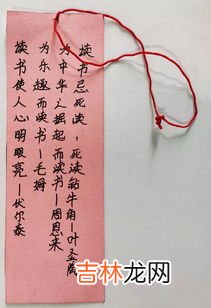 读书忌死读，死读钻牛角—叶圣陶
为中华之崛起而读书—周恩来
为乐趣而读书—毛姆
读书使人心明眼亮—伏尔泰
吉林龙网